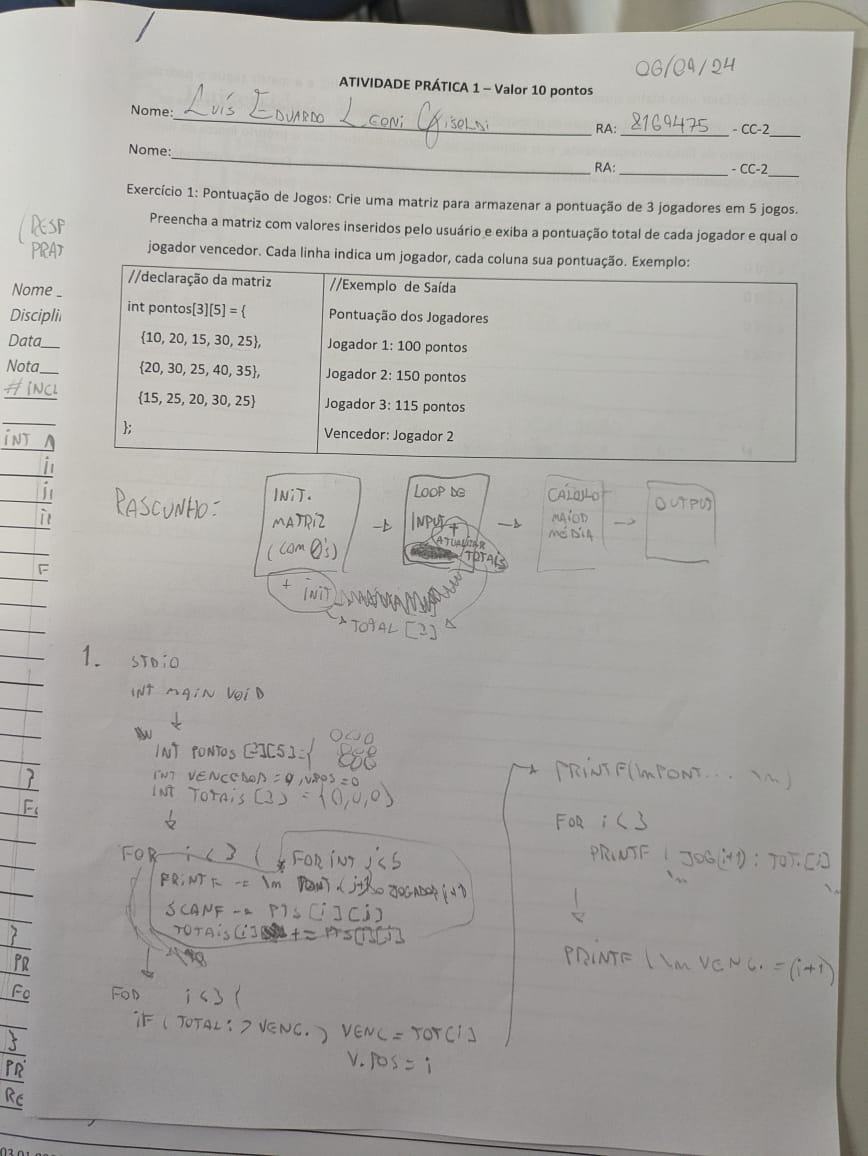 06/09/24
ATIVIDADE PRÁTICA 1 – Valor 10 pontos
Nome: Luís Eduardo Leoni Gisoldi RA: 8169475 - CC-2____
Nome: RA: - CC-2____
Exercício 1: Pontuação de Jogos: Crie uma matriz para armazenar a pontuação de 3 jogadores em 5 jogos.
Preencha a matriz com valores inseridos pelo usuário e exiba a pontuação total de cada jogador e qual o
jogador vencedor. Cada linha indica um jogador, cada coluna sua pontuação. Exemplo:
//declaração da matriz
int pontos[3][5] = {
{10, 20, 15, 30, 25},
{20, 30, 25, 40, 35},
{15, 25, 20, 30, 25}
};
//Exemplo de Saída
Pontuação dos Jogadores
Jogador 1: 100 pontos
Jogador 2: 150 pontos
Jogador 3: 115 pontos
Vencedor: Jogador 2
(RESP
PRAT
Nome
Discipli
Data
Nota
#INCL
INT
F
}
}
PR
Fo
}
PR
RE
RASCUNHO:
INIT.
MATRIZ
(COM 0's)
+ INIT
LOOP DE
INPUT +
ATUALIZAR
TOTAIS
TOTAL [3]
CÁLCULO
MAIOR
MÉDIA
OUTPUT
1. STDIO
INT MAIN VOID
INT PONTOS [3][5]={
INT VENCEDOR = 0, VPOS = 0
INT TOTAIS [3] = {0,0,0}
FOR i < 3 { FOR INT j < 5
PRINTF \n PONT (j+1) JOGADOR (i+1)
SCANF PTS [i][j]
TOTAIS [i] += PTS[i][j]
FOR i < 3 {
IF (TOTAL i > VENC.) VENC = TOT[i]
V.POS = i
PRINTF (\n PONT... \n)
FOR i < 3
PRINTF ( JOG(i+1) : TOT.[i]
\n
PRINTF ( \n VENC. = (i+1)